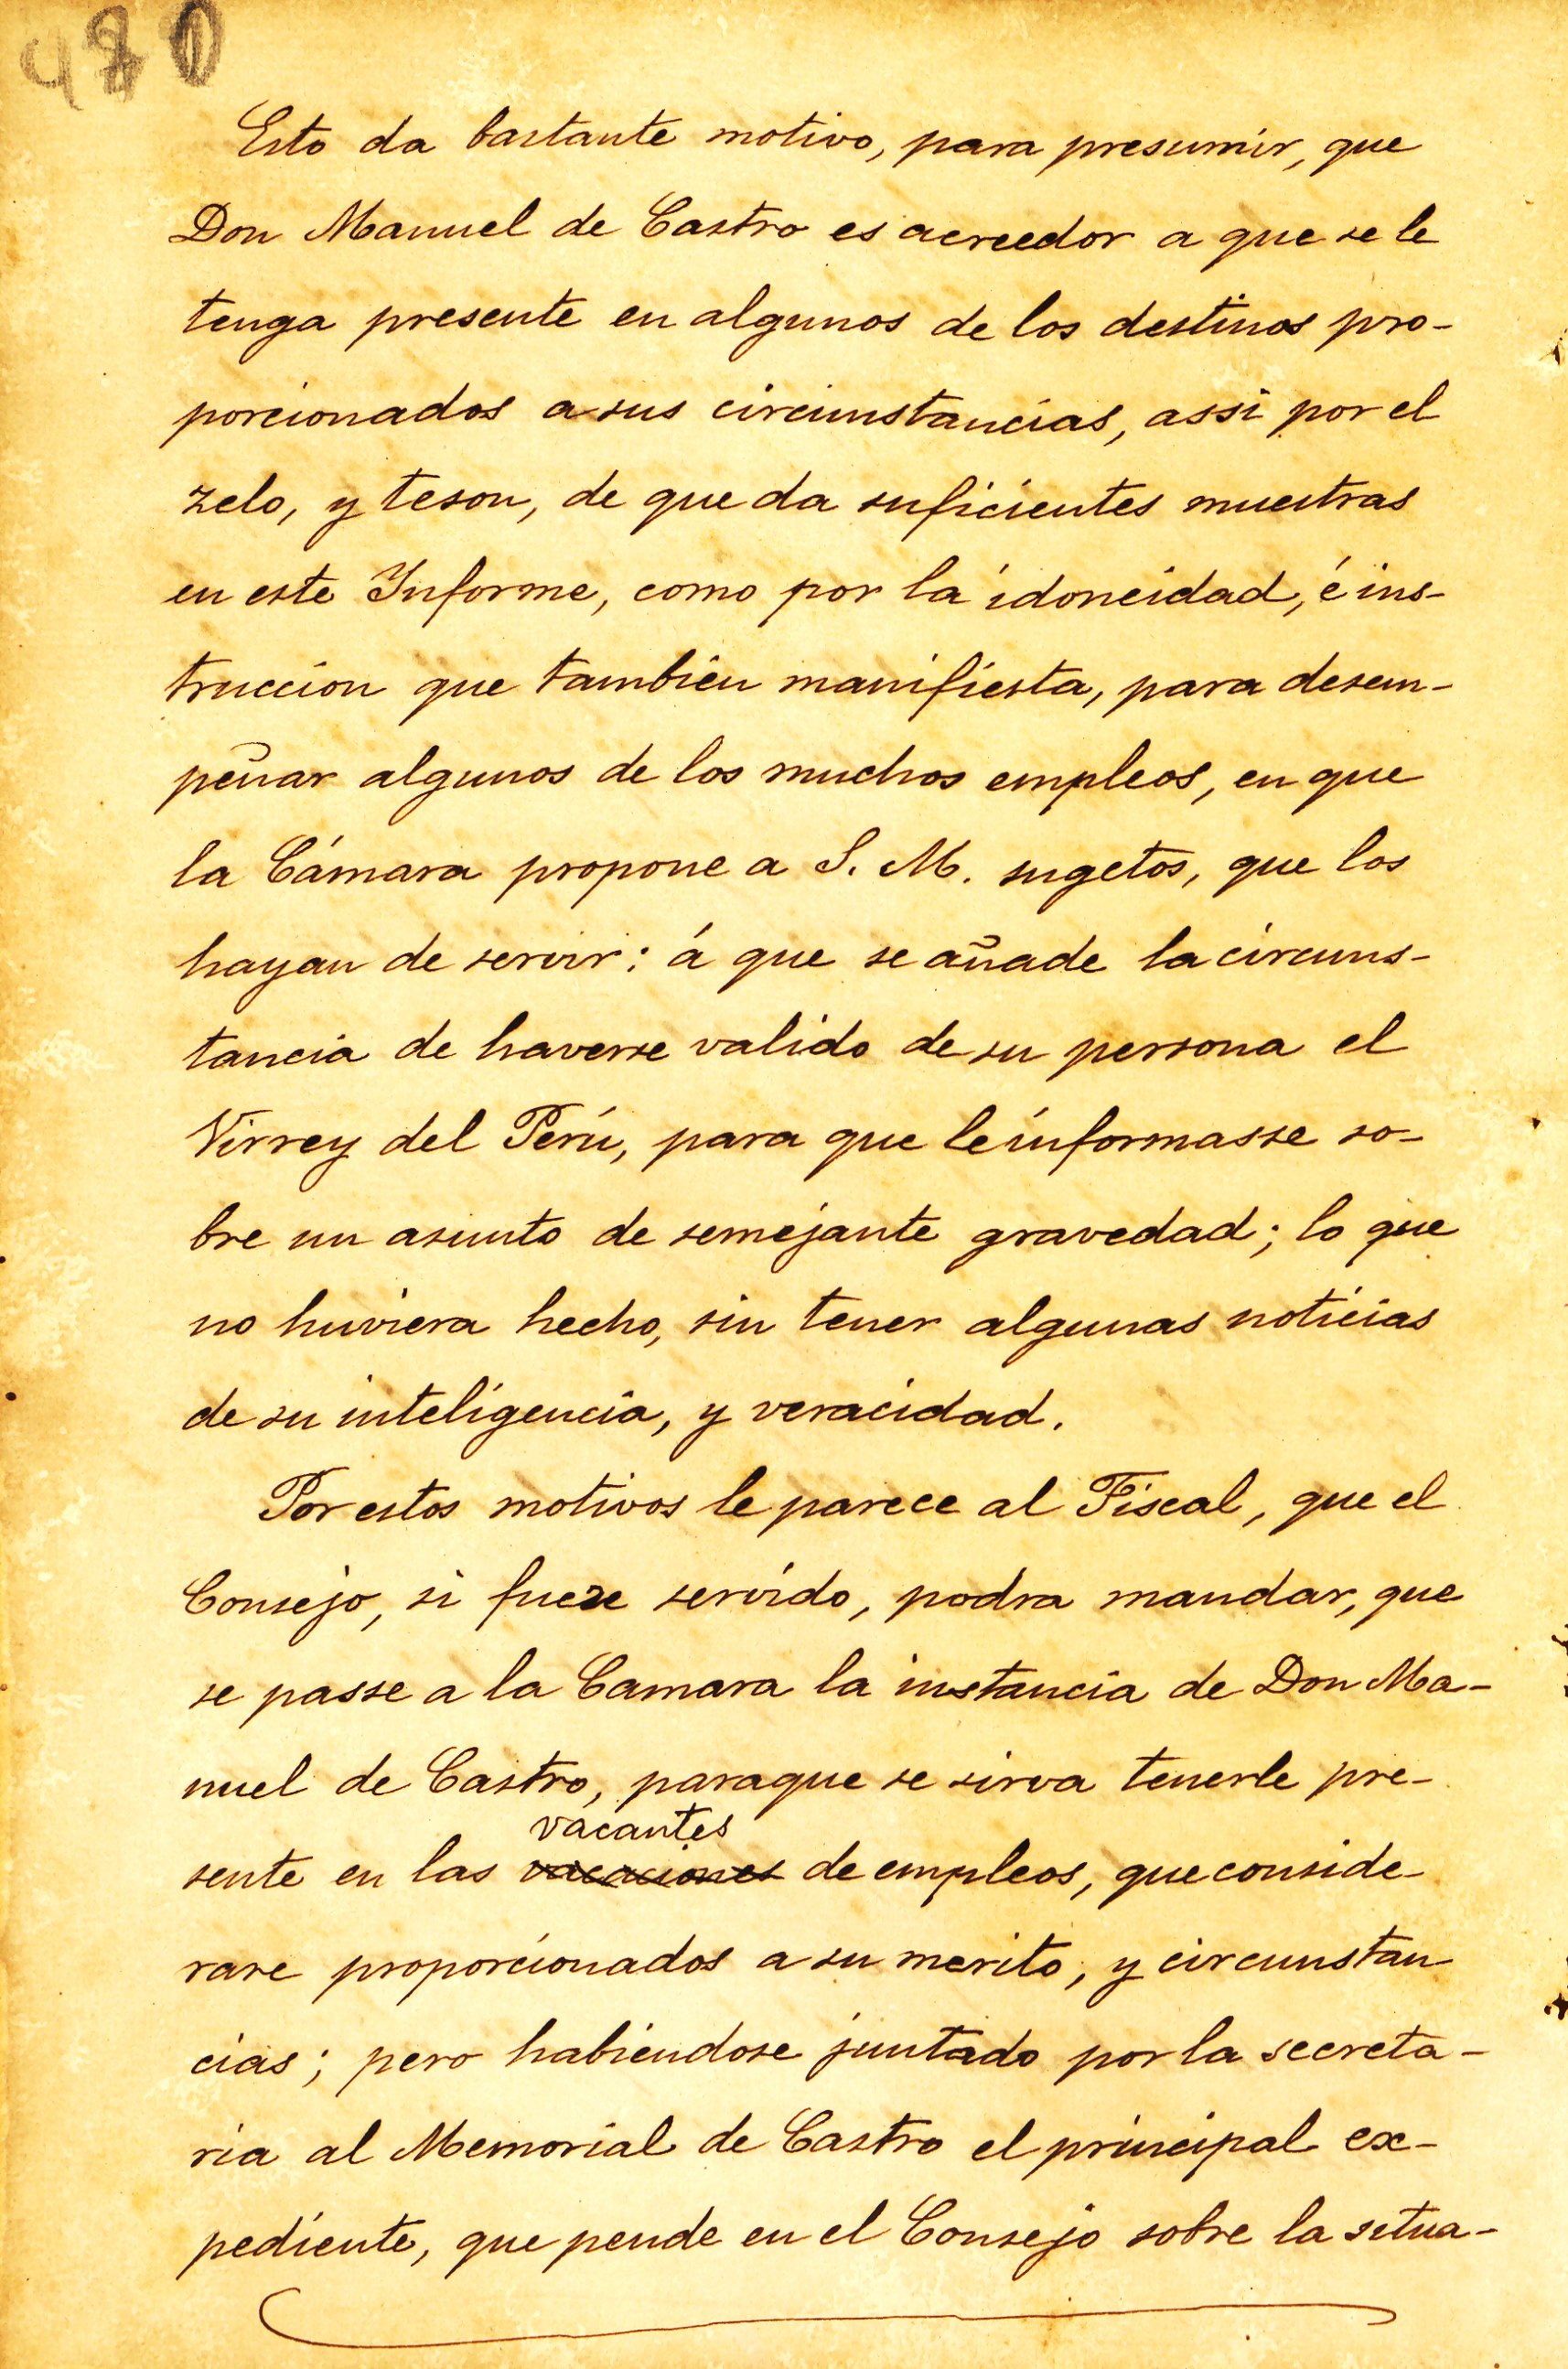 Esto da bastante motivo, para presumir, que
Don Manuel de Castro es acreedor a que se le
tenga presente en algunos de los destinos pro-
porcionados a sus circunstancias, assi por el
zelo, y teson, de que da suficientes muestras
en este Informe, como por la idoneidad, é ins-
truccion que tambien manifiesta, para desem-
peñar algunos de los muchos empleos, en que
la Cámara propone a S. M. sugetos, que los
hayan de servir: á que se añade la circuns-
tancia de haverse valido de su persona el
Virrey del Perú, para que le informasse so-
bre un asunto de semejante gravedad; lo que
no huviera hecho, sin tener algunas noticias
de su inteligencia, y veracidad.
Por estos motivos le parece al Fiscal, que el
Consejo, si fuere servido, podra mandar, que
se passe a la Camara la instancia de Don Ma-
nuel de Castro, paraque se sirva tenerle pre-
vacantes
sente en las vacaciones de empleos, que conside-
rare proporcionados a su merito, y circunstan
cias; pero habiendose juntado por la secreta-
ria al Memorial de Castro el principal ex-
pediente, que pende en el Consejo sobre la situa-